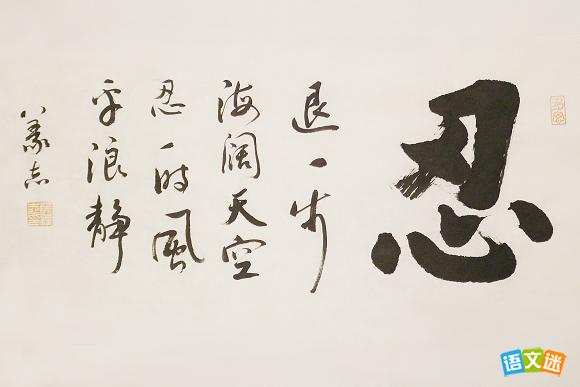 忍
退一步
海阔天空
忍一时風
平浪静
语文迷